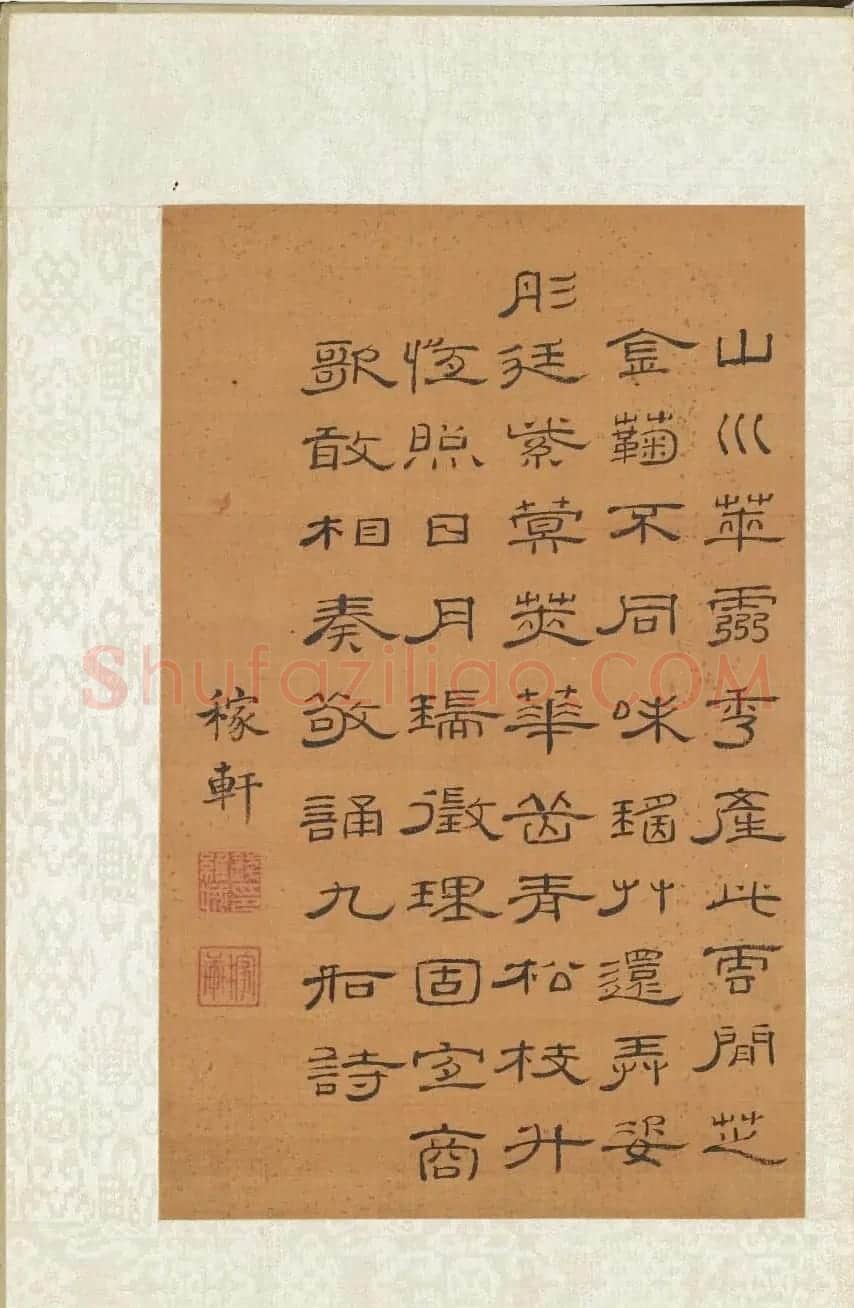 山川萃靈秀產此雲間芝
金蘜不同味瑤艸還弄姿
彤廷紫蓂莢華茁青松枝升
恆照日月瑞徵理固宜商
歌敢相奏敬誦九如詩
稼軒
Shufaziliao.COM